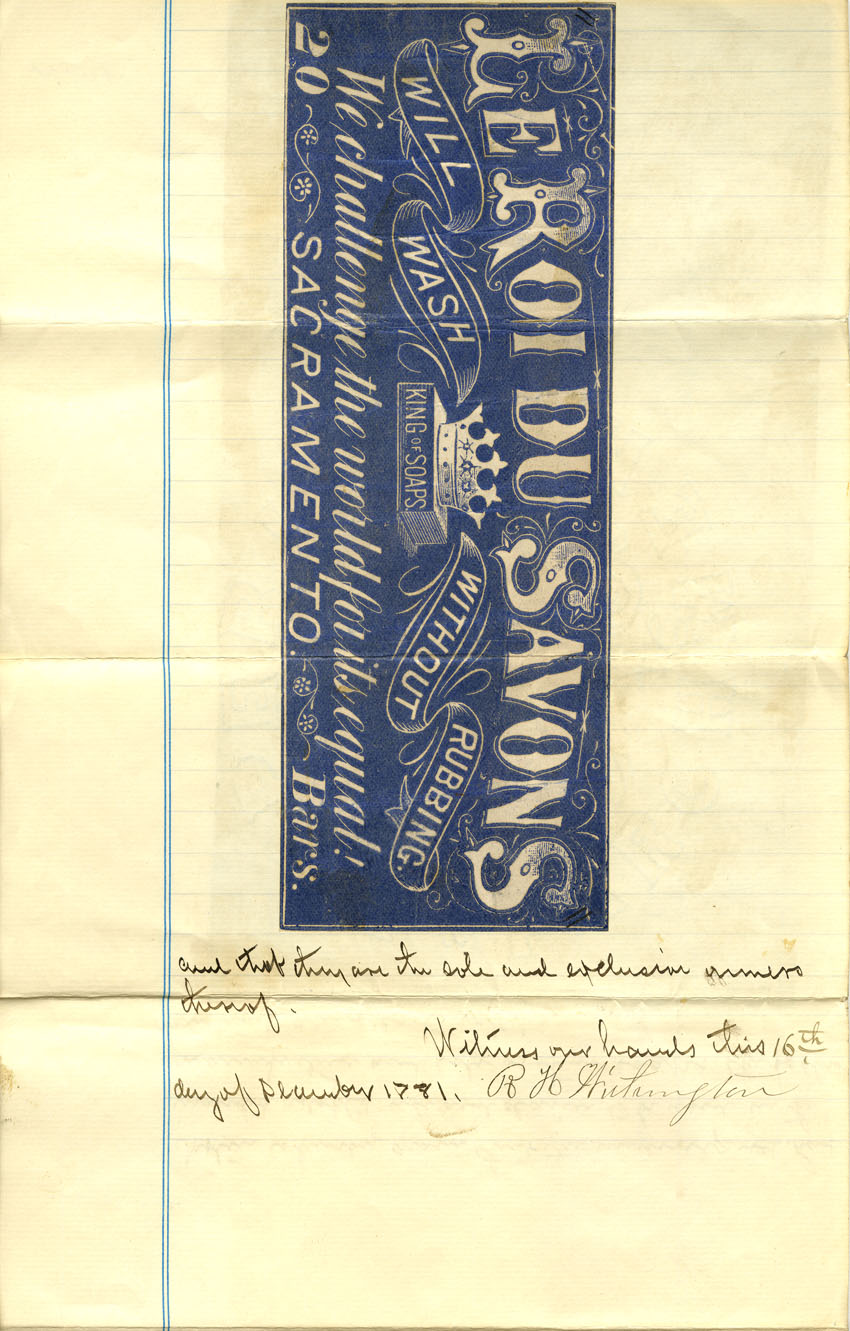 LE ROI DU SAVONS
WILL WASH WITHOUT RUBBING.
KING OF SOAPS
We challenge the world for its equal!
20 SACRAMENTO. Bars.
and that they are the sole and exclusive owners
thereof.
Witness our hands this 16th
day of December 1881. R H Withington